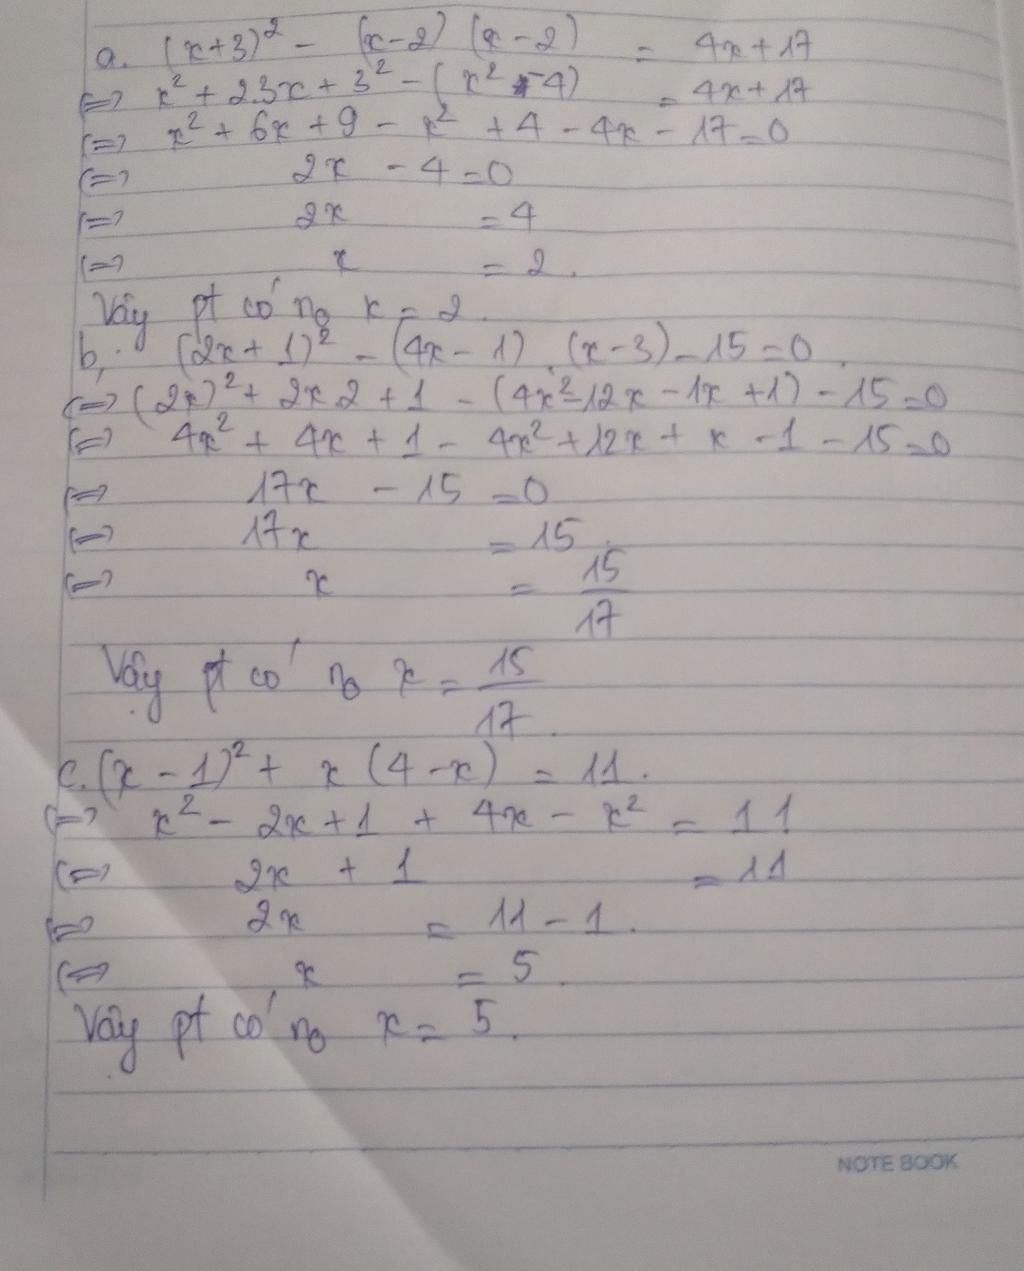 a. (x+3)² - (x-2) (x-2) = 4x+17
<=> x² + 2.3x + 3² - (x² -4) = 4x+17
<=> x² + 6x + 9 - x² + 4 - 4x - 17=0
<=> 2x - 4=0
<=> 2x = 4
<=> x = 2.
Vậy pt có no x = 2.
b, (2x+1)² - (4x-1).(x-3)-15=0.
<=> (2x)² + 2x2 + 1 - (4x²-12x-1x+1) - 15=0
<=> 4x² + 4x + 1 - 4x² +12x + x -1 -15=0
<=> 17x - 15 =0
<=> 17x = 15.
<=> x = 15/17
Vậy pt có no x = 15/17.
c. (x-1)² + x (4-x) = 11.
<=> x² - 2x+1 + 4x - x² = 11
<=> 2x + 1 = 11
<=> 2x = 11 - 1.
<=> x = 5.
Vậy pt có no x = 5.
NOTE BOOK